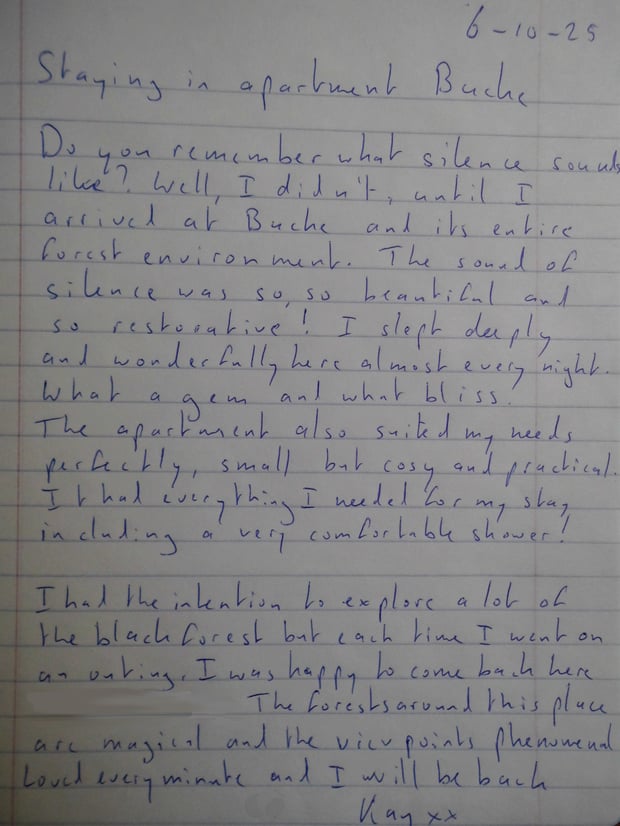 6-10-25
Staying in apartment Buche
Do you remember what silence sounds
like? Well, I didn't, until I
arrived at Buche and its entire
forest environment. The sound of
silence was so, so beautiful and
so restorative! I slept deeply
and wonderfully here almost every night.
What a gem and what bliss.
The apartment also suited my needs
perfectly, small but cosy and practical.
It had everything I needed for my stay
including a very comfortable shower!
I had the intention to explore a lot of
the black forest but each time I went on
an outing, I was happy to come back here
The forests around this place
are magical and the viewpoints phenomenal
Loved every minute and I will be back
Kay xx